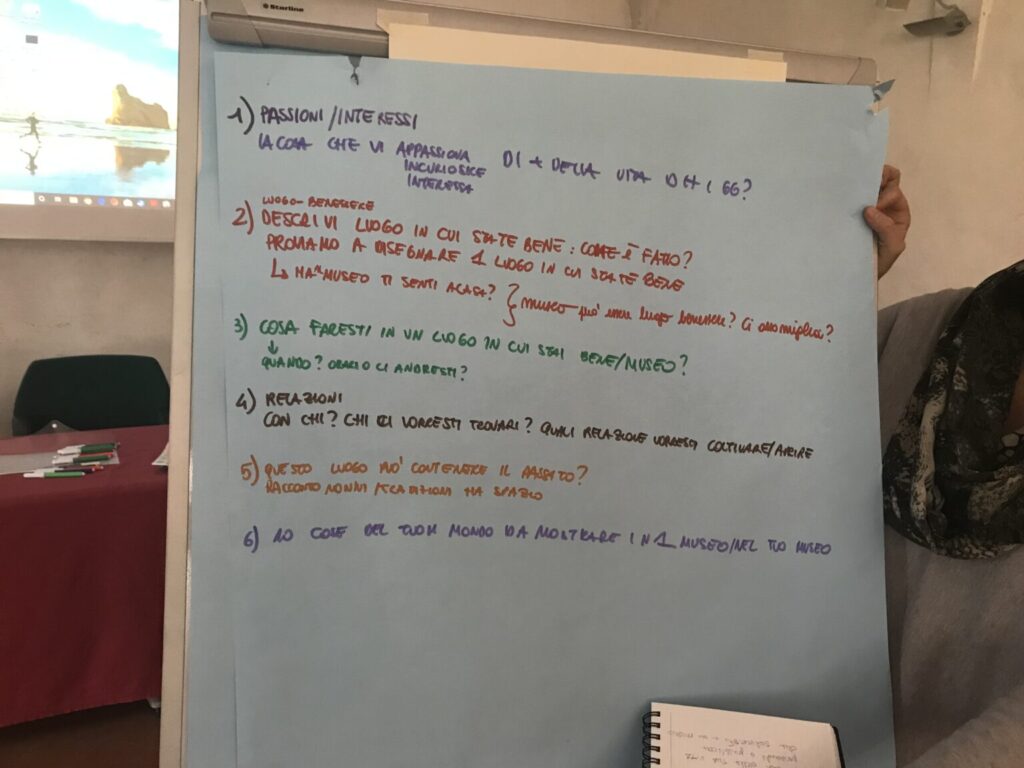 Starline
1) PASSIONI/INTERESSI
LA COSA CHE VI APPASSIONA DI + DELLA VITA DI +I GG?
INCURIOSISCE
INTERESSA
LUOGO-BENESSERE
2) DESCRIVI LUOGO IN CUI STATE BENE: COME È FATTO?
PROVIAMO A DISEGNARE 1 LUOGO IN CUI STATE BENE
MUSEO TI SENTI A CASA? } museo può essere luogo benessere? Ci assomiglia?
3) COSA FARESTI IN UN LUOGO IN CUI STAI BENE/MUSEO?
QUANDO? ORARIO CI ANDRESTI?
4) RELAZIONI
CON CHI? CHI CI VORRESTI TROVARE? QUALI RELAZIONE VORRESTI COLTIVARE/APRIRE
5) QUESTO LUOGO PUO' CONTENERE IL PASSATO?
RACCONTO NONNI/TRADIZIONI HA SPAZIO
6) 10 COSE DEL TUO MONDO DA MOSTRARE IN 1 MUSEO/NEL TUO MUSEO